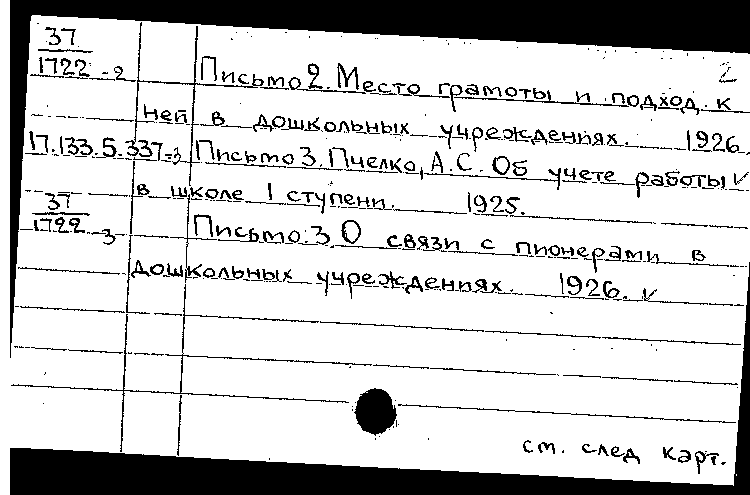 37
2
1722-2 Письмо 2. Место грамоты и подход к
ней в дошкольных учреждениях. 1926
17.133.5.337-3 Письмо 3. Пчелко, А.С. Об учете работы ✓
в школе I ступени. 1925.
37
1722-3 Письмо: 3. О связи с пионерами в
дошкольных учреждениях. 1926. ✓
см. след карт.